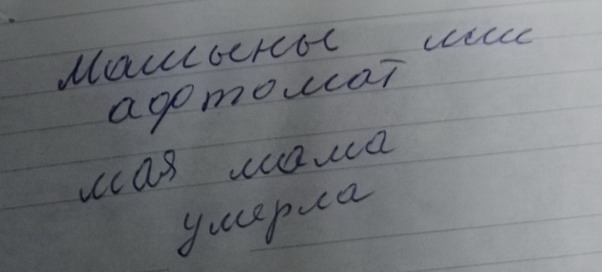 машыны или
афтомат
мая мама
умерла